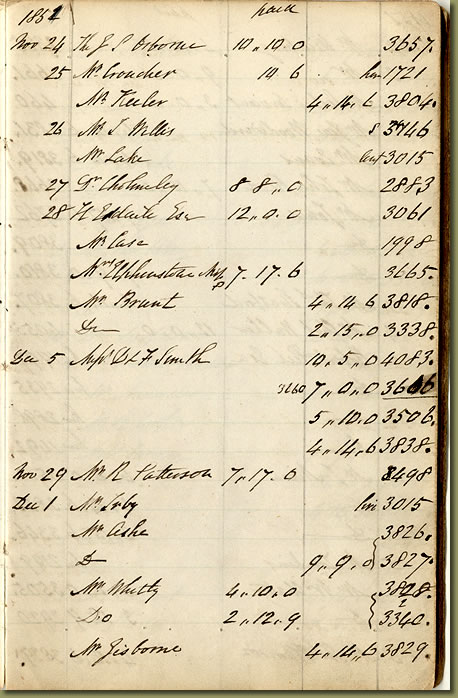 1852 paid
Nov 24 Mr J S Osborne 10,,10,,0 3657.
25 Mr Croucher 10,,6 1721
Mr Keeler 4,,14,,6 3804.
26 Mr J Willis 8 3746
Mr Lake 3015
27 Dr Cholmeley 8,,8,,0 2883
28 H Esq 12,,0,,0 3061
Mr Case 1998
Mrs Elphinstone 7,,17,,6 3665.
Mr Brant 4,,14,,6 3818.
Do 2,,15,,0 3338.
Dec 5 D & F Smith 10,,5,,0 4083.
3660 7,,0,,0
5,,10,,0 3506.
4,,14,,6 3838.
Nov 29 Mr R Patterson 7,,17,,0 3498
Dec 1 Mr Irby 3015
Mr Ashe 3826.
D 9,,9,,0 3827.
Mr Whitty 4,,10,,0 3828.
Do 2,,12,,9 3340.
Mr Gisborne 4,,14,,6 3829.